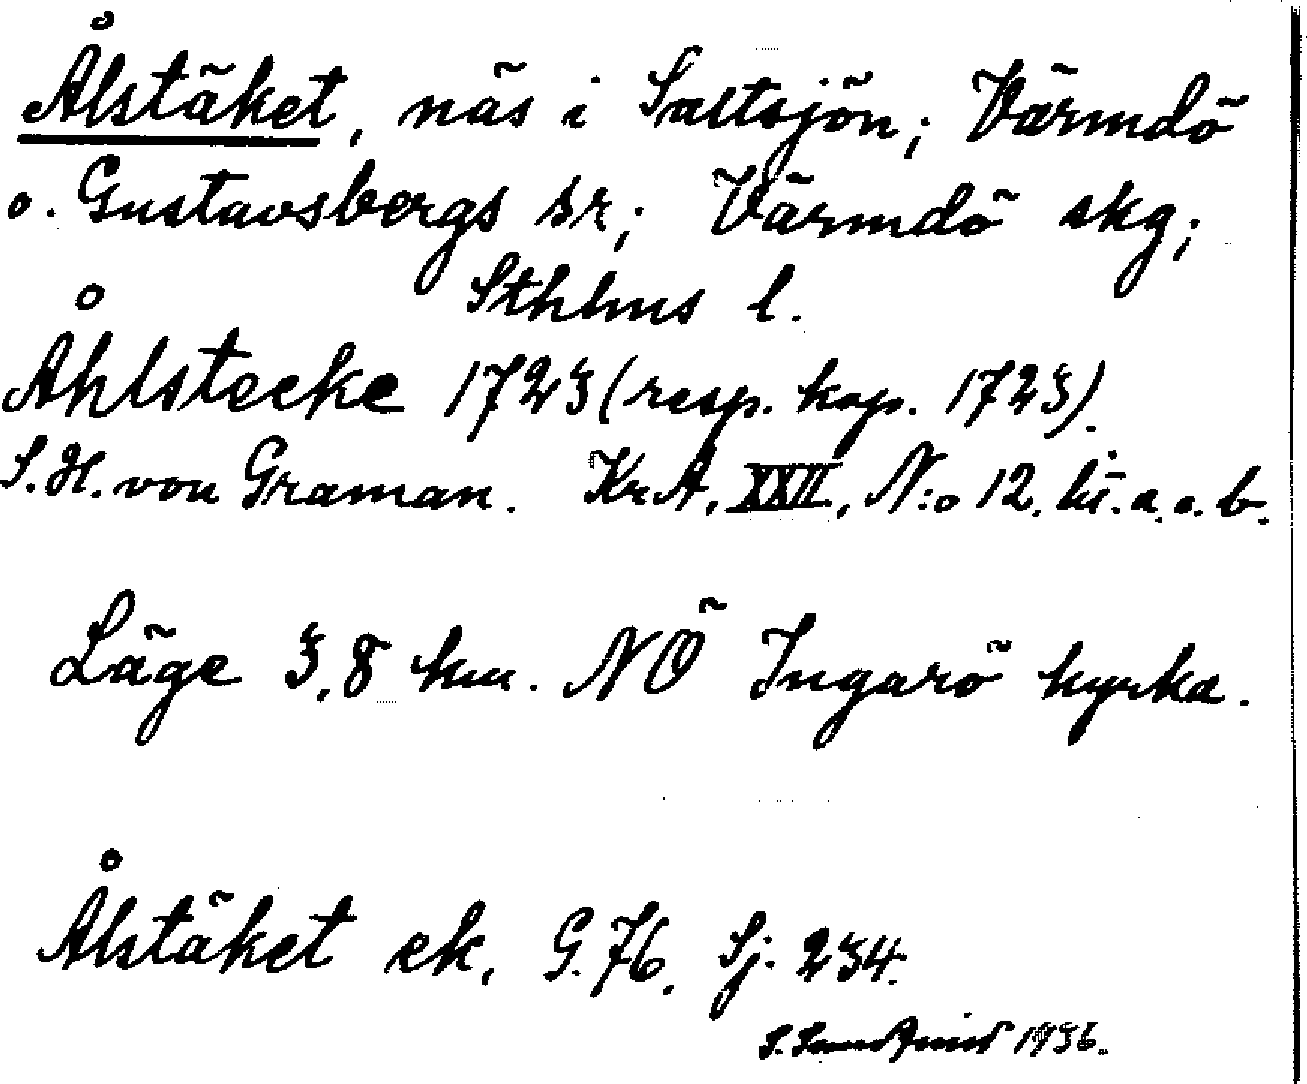 Ålstäket, näs i Saltsjön; Värmdö
o. Gustavsbergs sr; Värmdö skg;
Sthlms l.
Åhlstecke 1723 (resp. kop. 1723).
S. H. von Graman. KrA, XXII, N:o 12. lit. a. o. b.
Läge 3,8 km. NÖ Ingarö kyrka.
Ålstäket ek. G. 76. Sj. 234.
S. 1936.